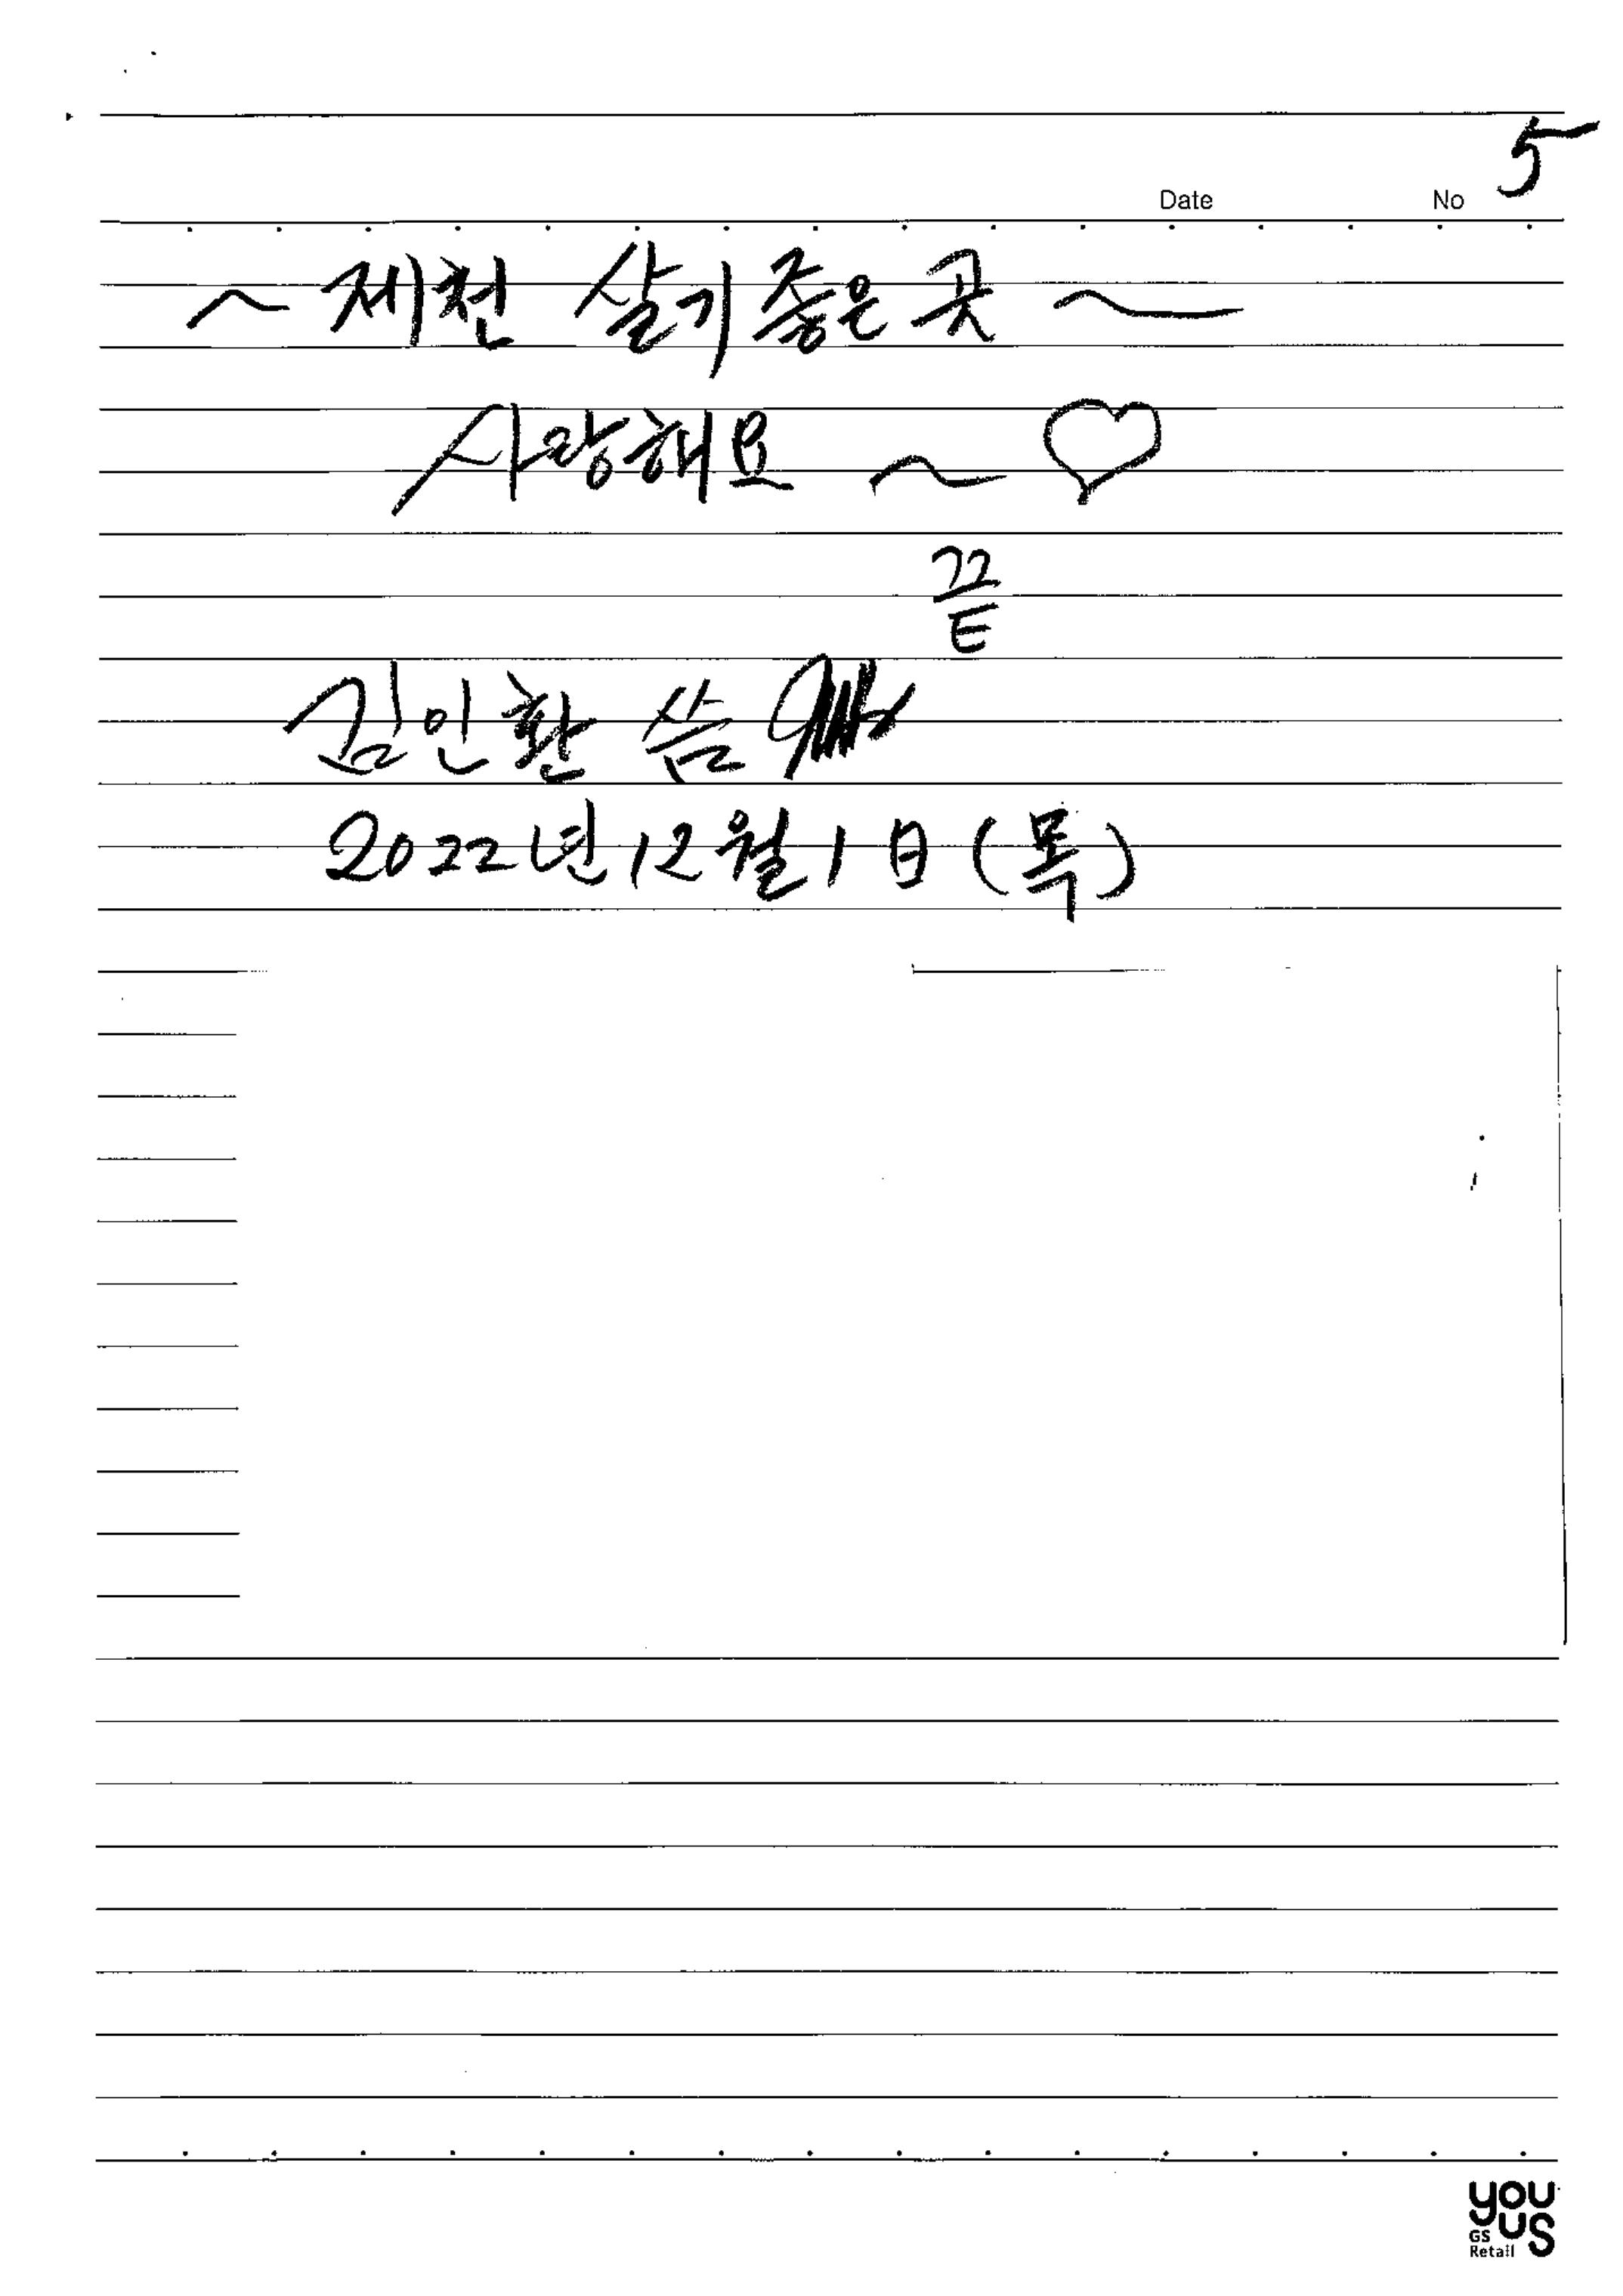 5
Date No
~ 제천 살기 좋은 곳 ~
사랑해요 ~ ♡
끝
김인환 씀
2022년 12월 1日 (목)
you
us
GS
Retail